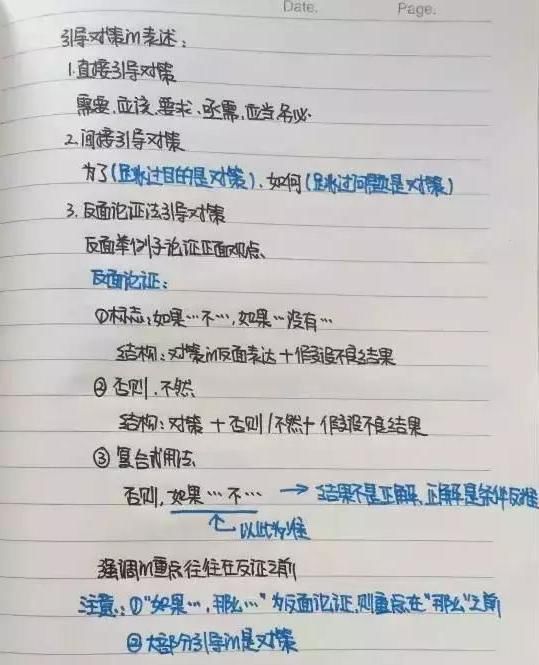 Date.
Page.
引导对策的表述:
1.直接引导对策
需要、应该、要求、亟需、应当务必.
2.间接引导对策
为了(跳过目的是对策)、如何(跳过问题是对策)
3.反面论证法引导对策
反面举例子论证正面观点、
反面论证:
①标志:如果…不…,如果…没有…
结构:对策的反面表达+假设不良结果
②否则、不然
结构:对策+否则/不然+假设不良结果
③复合式用法
否则,如果…不… → 结果不是正解,正解是条件反推
以此为准
强调的重点往往在反证之前
注意:①"如果…,那么…"为反面论证,则重点在"那么"之前
②大部分引导的是对策